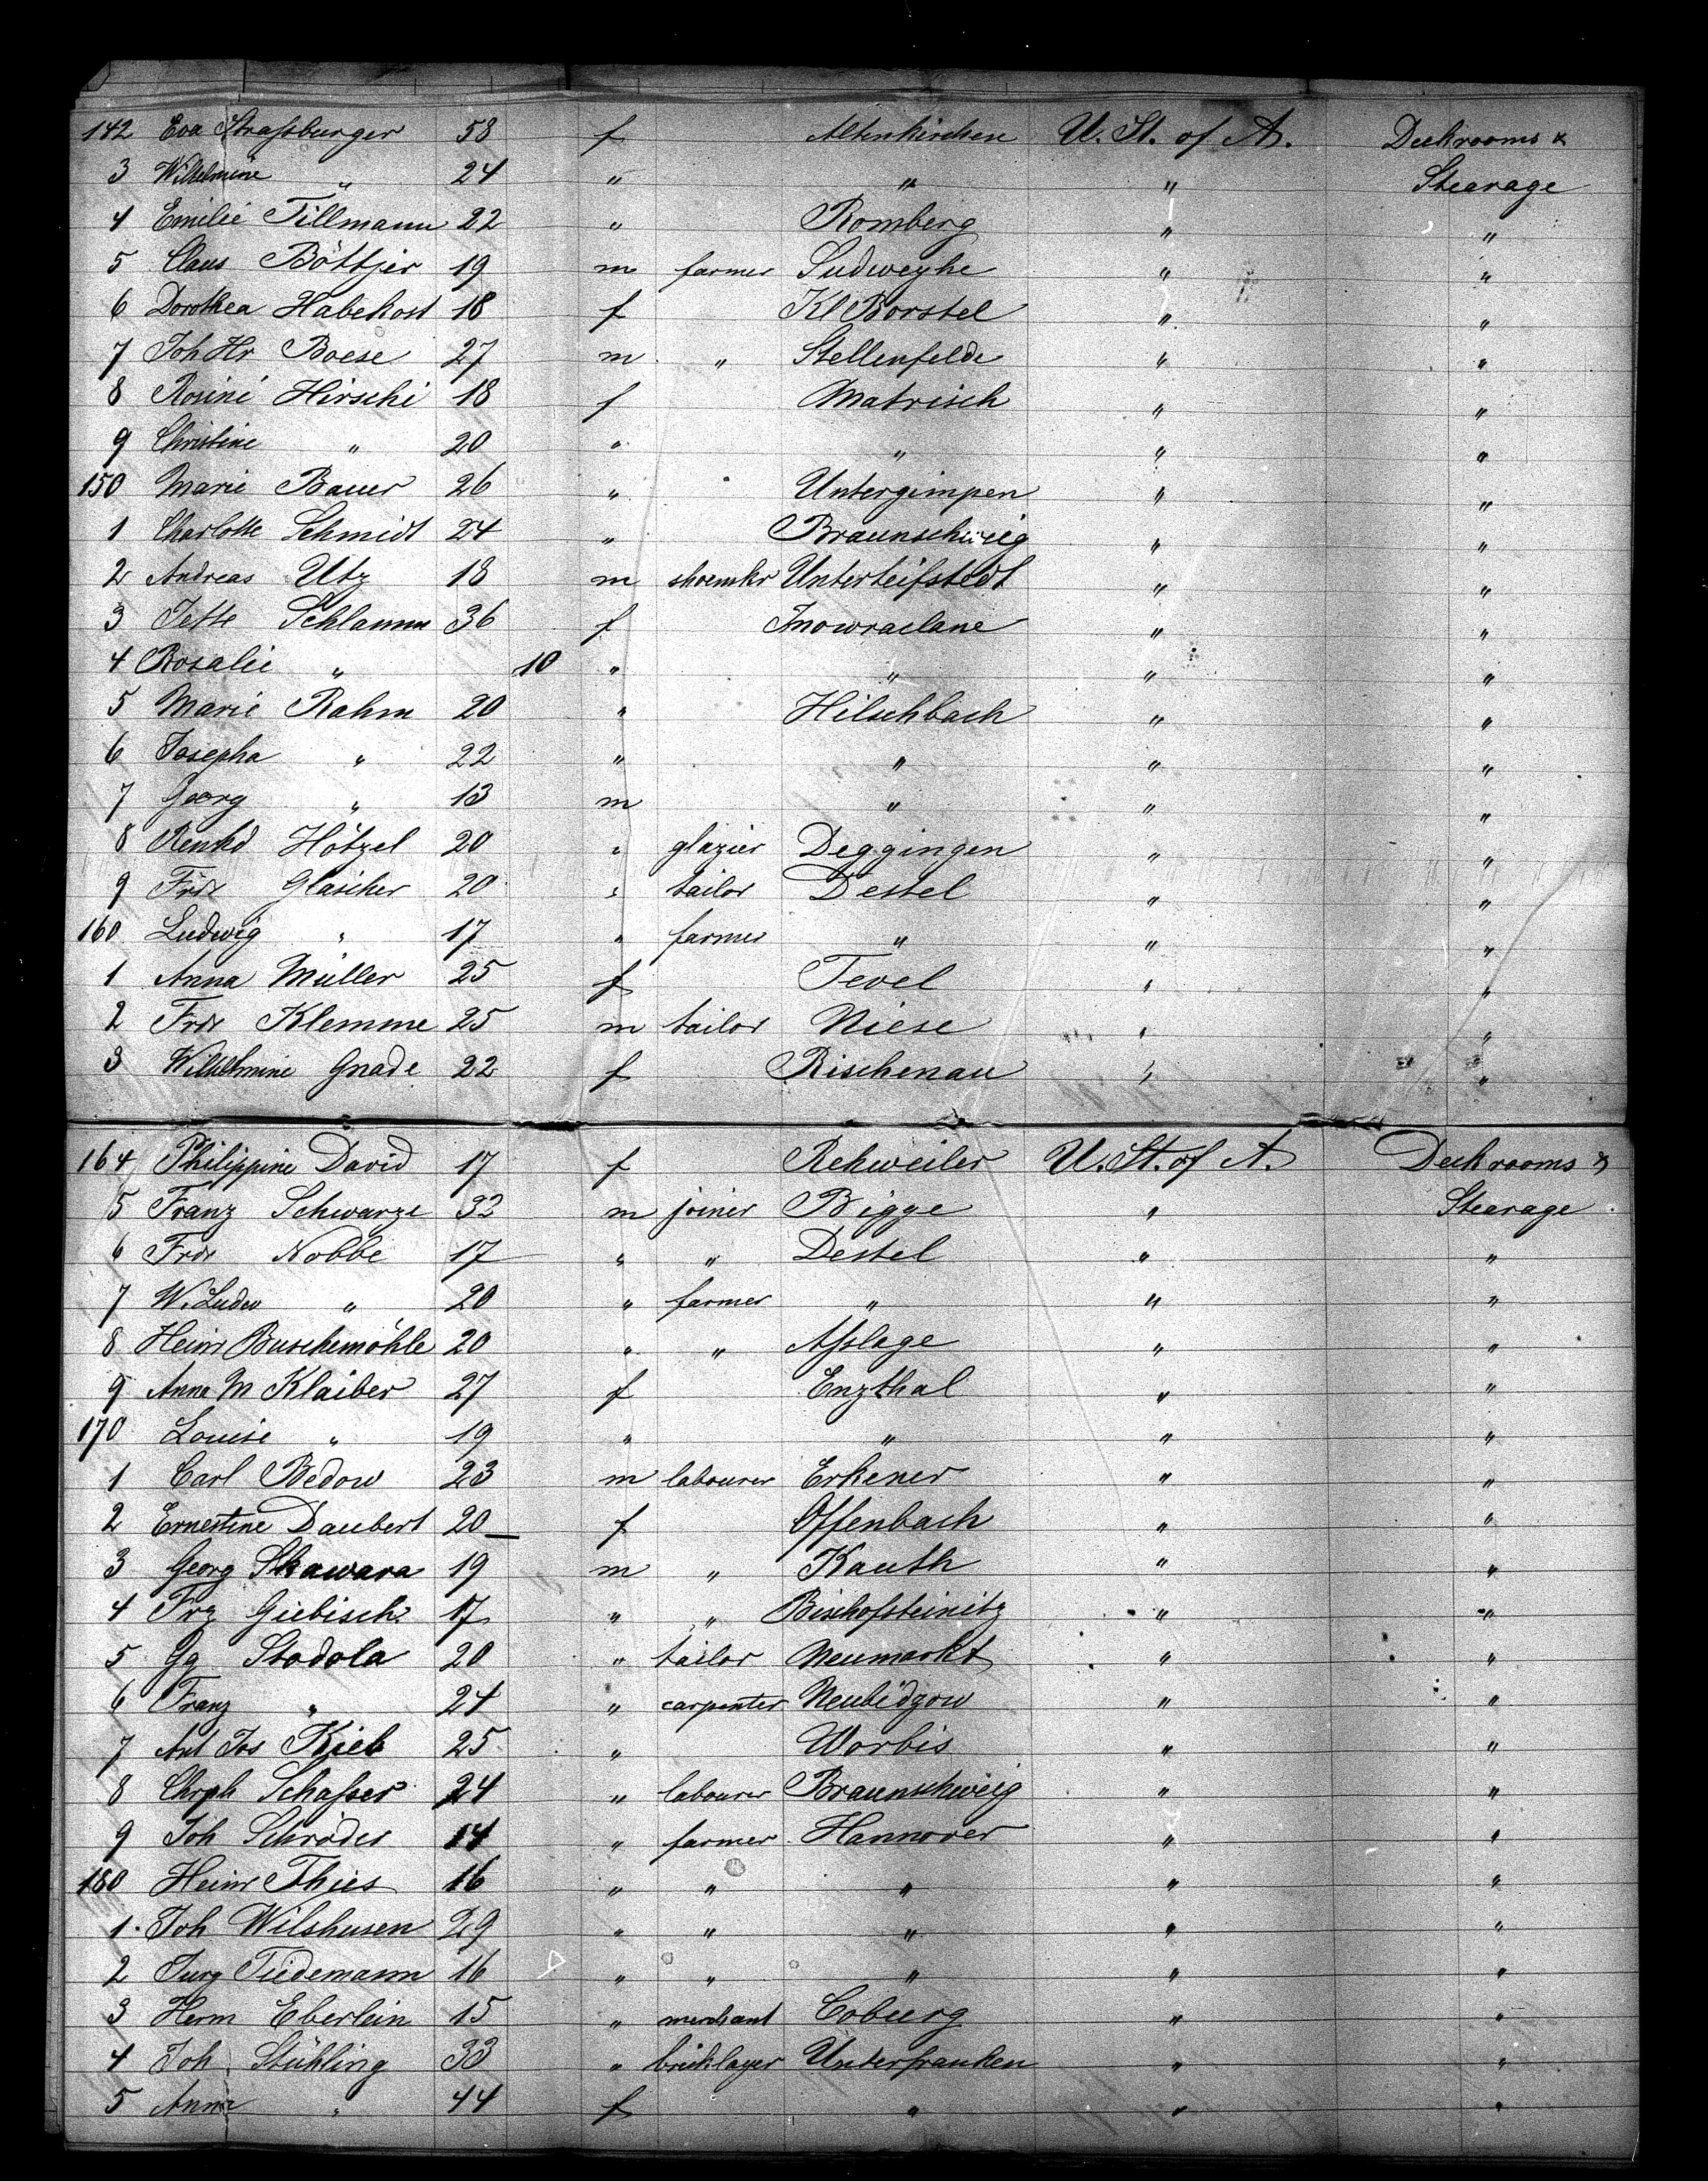 142 Eva Straßburger 58 f Altenkirchen U. St. of A. Deckrooms &
3 Wilhelmine " 24 " " " Stearage
4 Emilie Tillmann 22 " Romberg " "
5 Claus Böttjer 19 m farmer Sudweyhe " "
6 Dorothea Habekost 18 f Kl Borstel " "
7 Joh Hr Boese 27 m " Stellenfelde " "
8 Rosine Hirschi 18 f Matrisch " "
9 Christine " 20 " " " "
150 Marie Bauer 26 " Untergimpen " "
1 Charlotte Schmidt 24 " Braunschweig " "
2 Andreas Utz 18 m shoemkr Unterleifstedt " "
3 Jette Schlamm 36 f Inowraclane " "
4 Rosalie " 10 " " " "
5 Marie Rahm 20 " Hilschbach " "
6 Josepha " 22 " " " "
7 Georg " 13 m " " "
8 Renhd Hötzel 20 " glazier Deggingen " "
9 Frdr Gläscher 20 " tailor Destel " "
160 Ludwig " 17 " farmer " " "
1 Anna Müller 25 f Tevel " "
2 Frdr Klemme 25 m tailor Niese " "
3 Wilhelmine Gnade 22 f Rischenau " "
164 Philippine David 17 f Rehweiler U. St. of A. Deckrooms &
5 Franz Schwarze 32 m joiner Bigge " Stearage
6 Frdr Nobbe 17 " " Destel " "
7 W. Ludw " 20 " farmer " " "
8 Heinr Buschemöhle 20 " " Aßlage " "
9 Anna M Klaiber 27 f Enzthal " "
170 Louise " 19 " " " "
1 Carl Bedow 23 m labourer Erkener " "
2 Ernestine Daubert 20 f Offenbach " "
3 Georg Skawara 19 m " Kauth " "
4 Frz Giebisch 17 " " Bischofsteinitz " "
5 Gg Stodola 20 " tailor Neumarkt " "
6 Franz " 24 " carpenter Neubidzow " "
7 Ant Jos Kieb 25 " Worbis " "
8 Chrph Schaßer 24 " labourer Braunschweig " "
9 Joh Schröder 14 " farmer Hannover " "
180 Heinr Thies 16 " " " " "
1 Joh Wilshusen 29 " " " " "
2 Jurg Tiedemann 16 " " " " "
3 Herm Eberlein 15 " merchant Coburg " "
4 Joh Stühling 33 " bricklayer Unterfranken " "
5 Anna " 44 f " " "